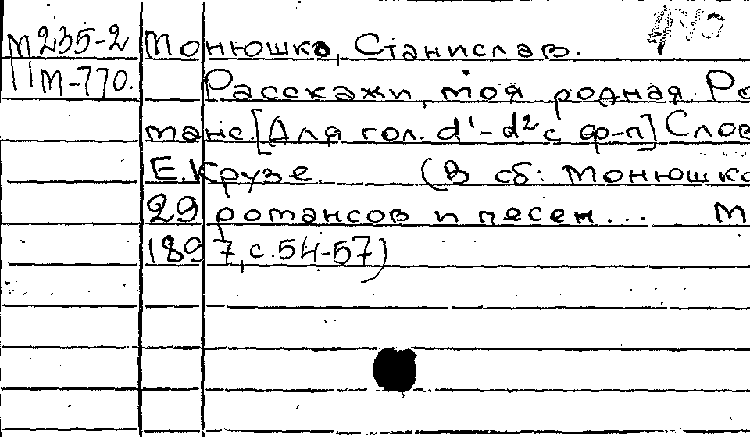 М235-2 Монюшко, Станислав.
ПМ-770. Расскажи, моя родная. Ро
манс. [Для гол. d¹-d² с ф-п] Слов
Е. Крузе. (В сб: Монюшко
29 романсов и песен... М
1897, с. 54-57)